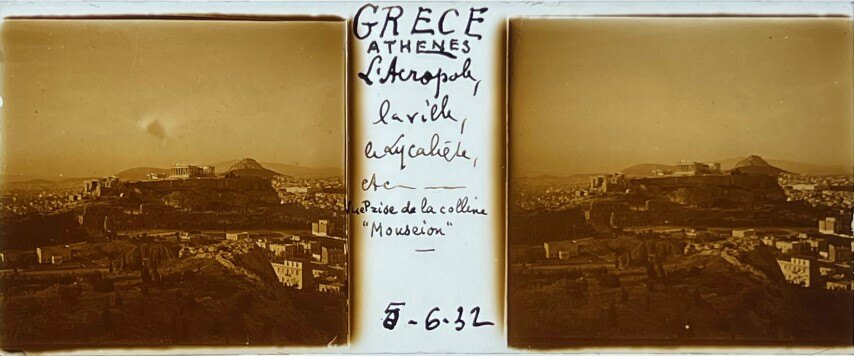 GRECE
ATHENES
L'Acropole,
la ville,
le Lycabète,
etc
Vue Prise de la colline
"Mouseion"
5-6-32